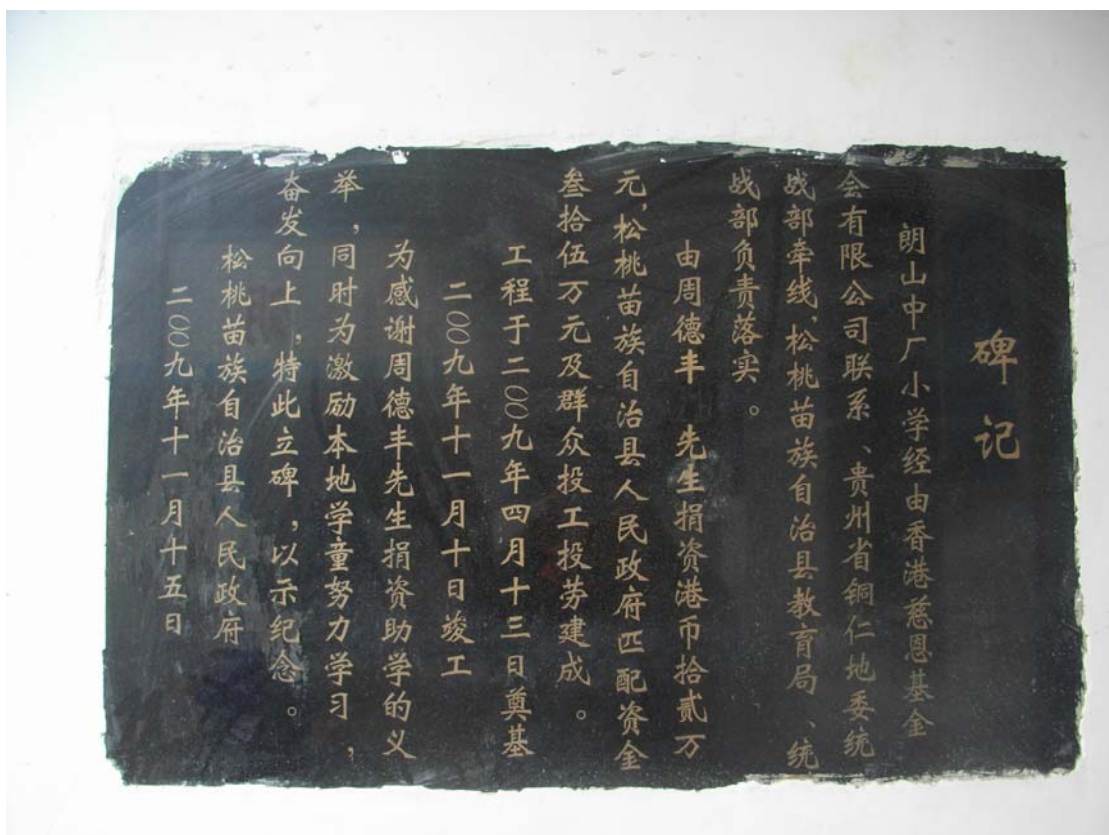 碑记
朗山中厂小学经由香港慈恩基金
会有限公司联系、贵州省铜仁地委统
战部牵线、松桃苗族自治县教育局、统
战部负责落实。
由周德丰 先生捐资港币拾贰万
元,松桃苗族自治县人民政府匹配资金
叁拾伍万元及群众投工投劳建成。
工程于二〇〇九年四月十三日奠基
二〇〇九年十一月十日竣工
为感谢周德丰先生捐资助学的义
举,同时为激励本地学童努力学习,
奋发向上,特此立碑,以示纪念。
松桃苗族自治县人民政府
二〇〇九年十一月十五日